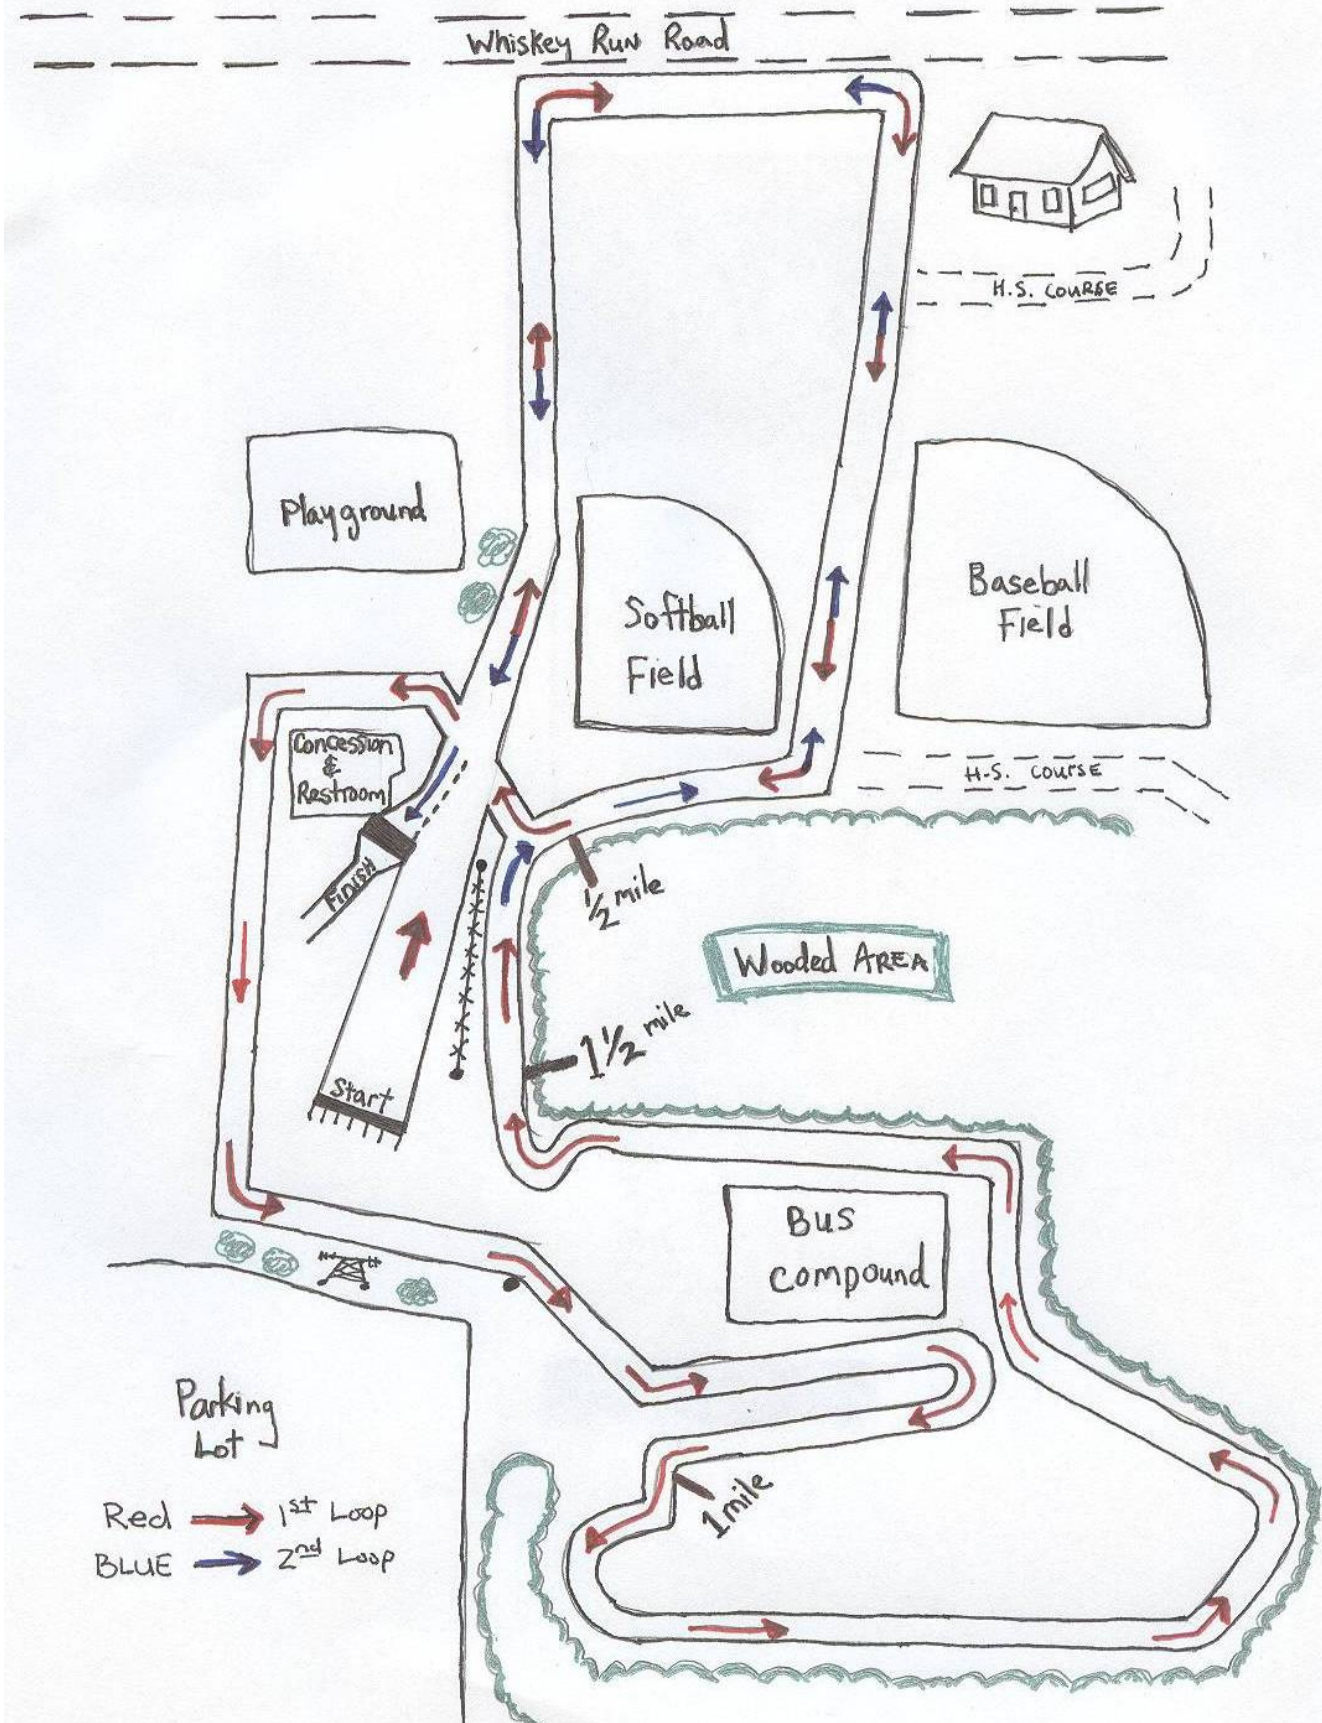 Whiskey Run Road
H.S. COURSE
Playground
Softball
Field
Baseball
Field
Concession
&
Restroom
H.S. COURSE
FINISH
1/2 mile
Wooded AREA
1 1/2 mile
Start
BUS
compound
Parking
Lot
1 mile
Red 1st Loop
BLUE 2nd Loop